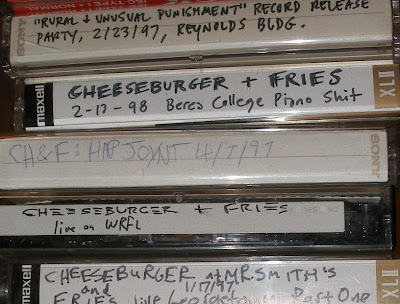 TYPE I · NORMAL
"RURAL + UNUSUAL PUNISHMENT" RECORD RELEASE
PARTY, 2/23/97, REYNOLDS BLDG.
SONY
maxell
CHEESEBURGER + FRIES
2-13-98 Berea College Piano Shit
XLII
CH&F: HAP JOYNT 4/7/97
SONY
maxell
CHEESEBURGER + FRIES
live on WRFL
XLII
maxell
CHEESEBURGER at MR. SMITH'S
and 1/17/97
FRIES live Part One
XLII